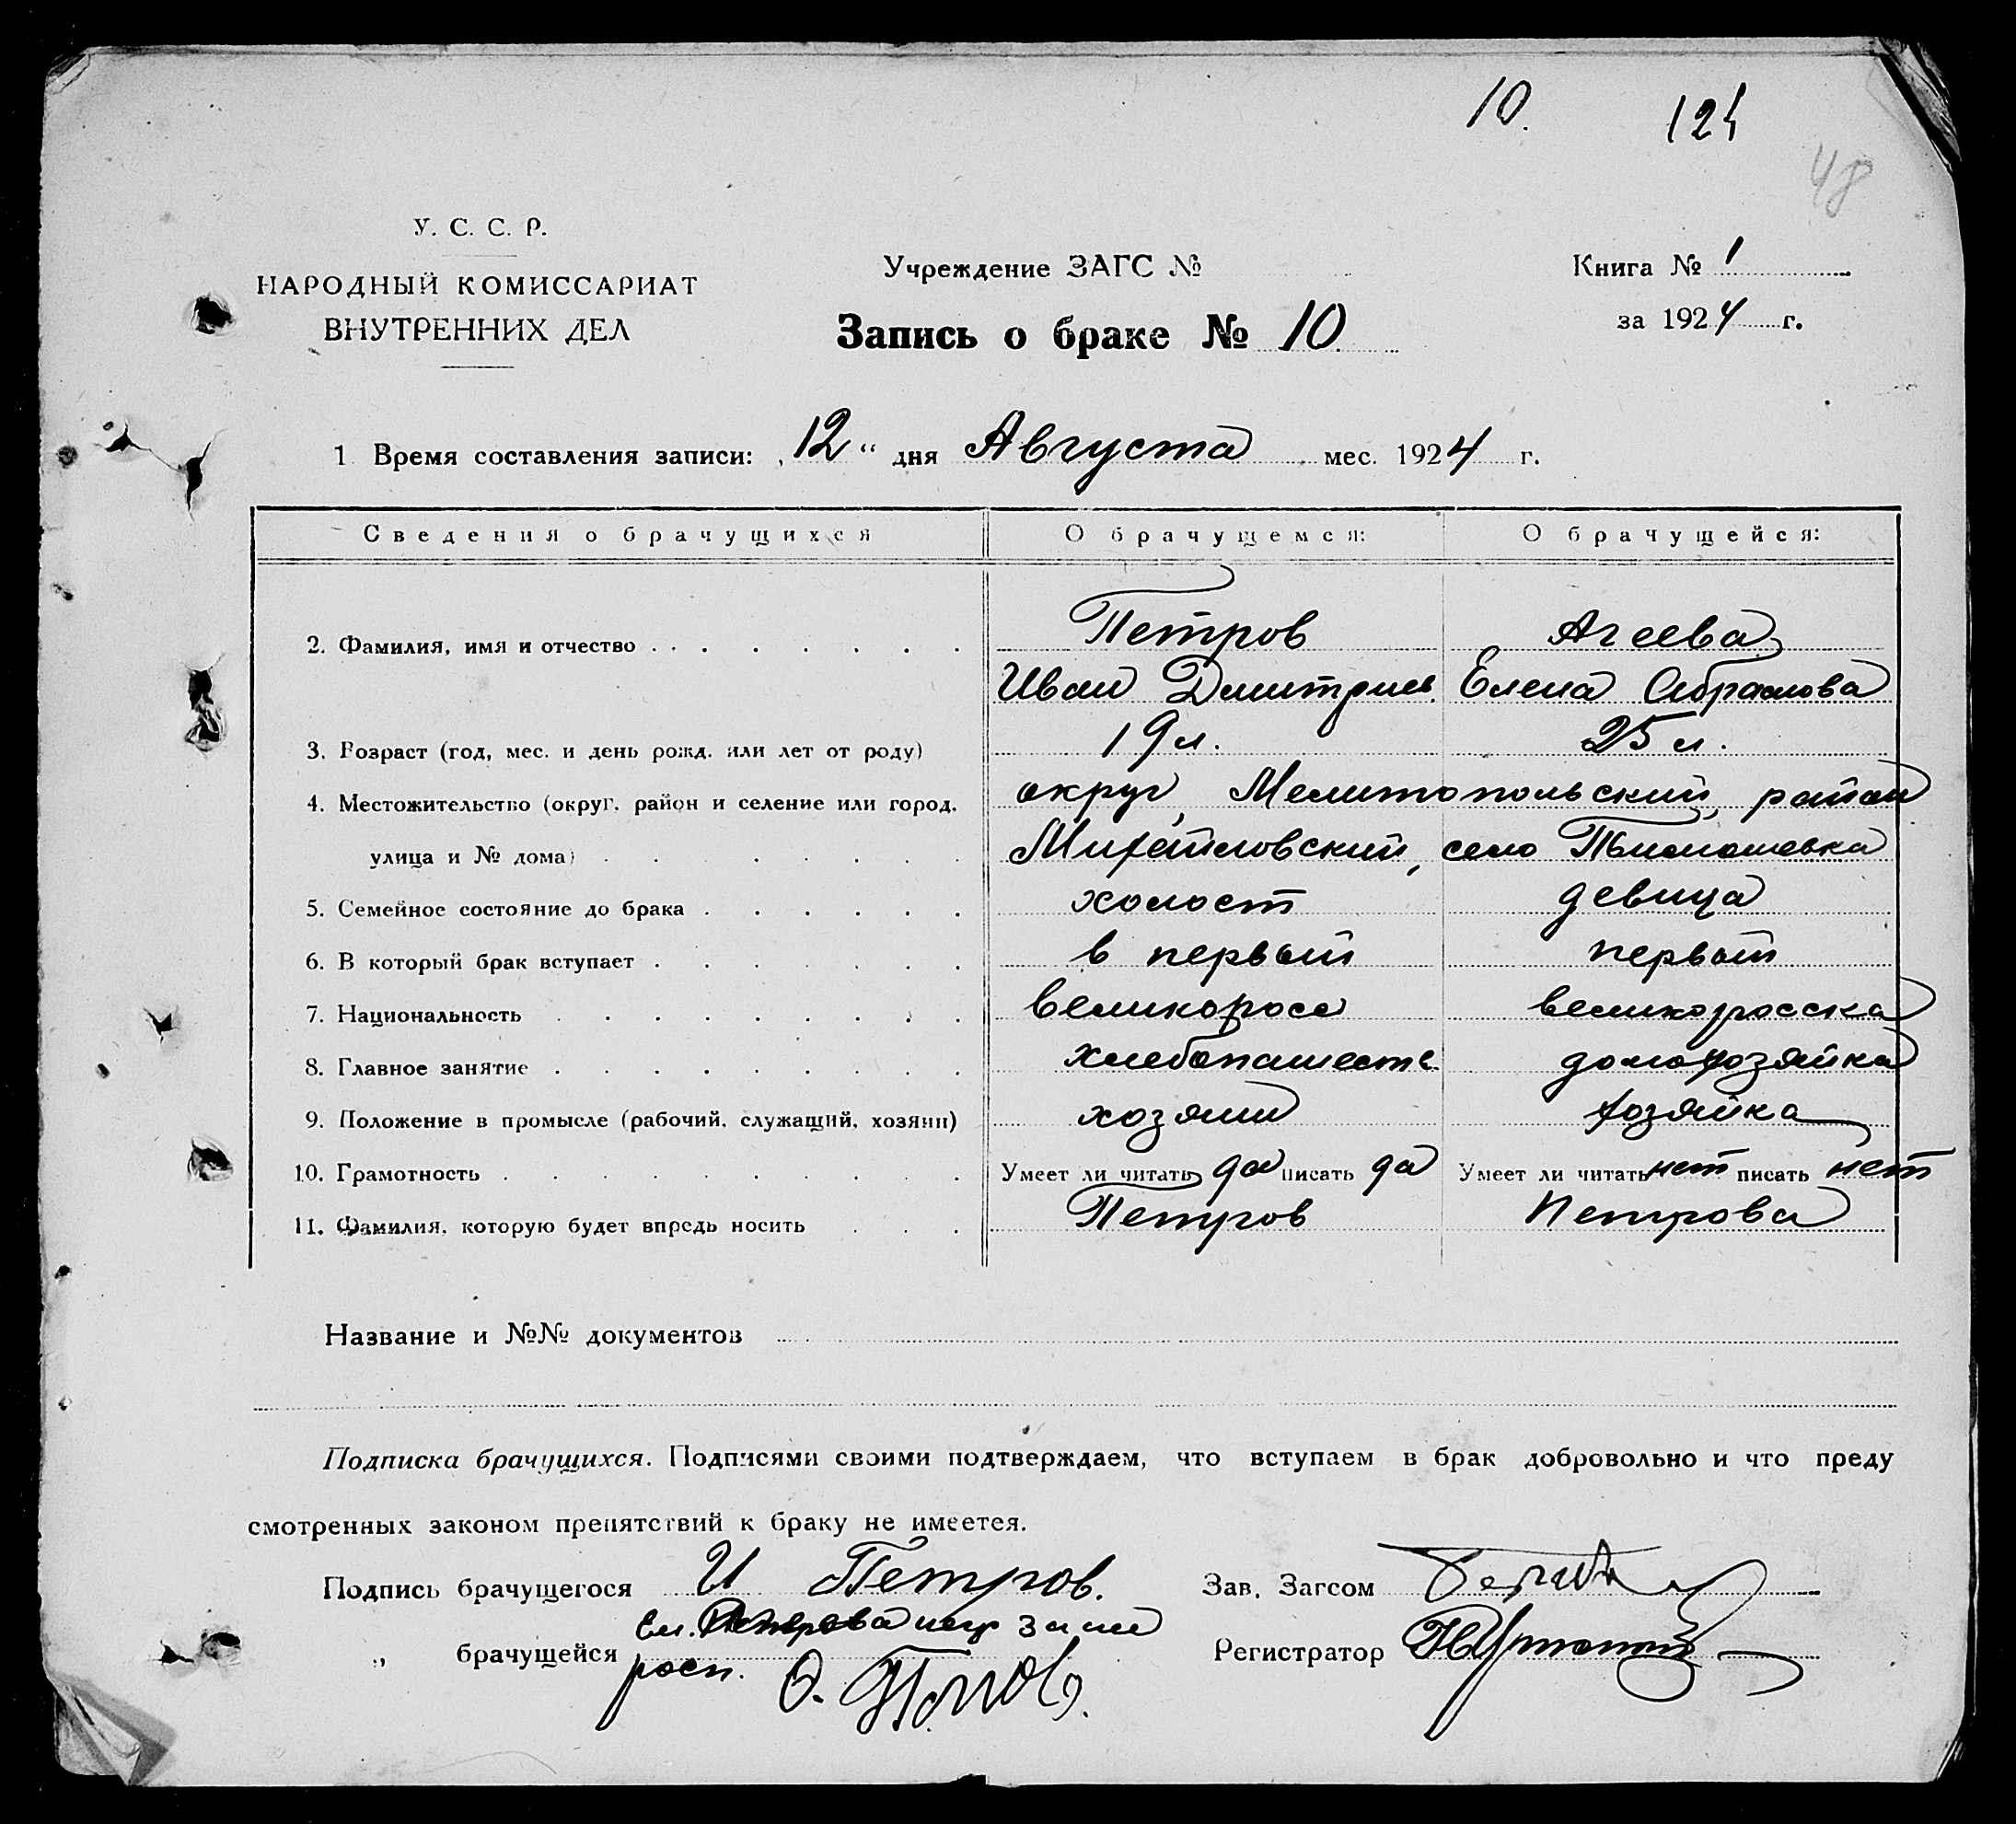 10. 124
48
У. С. С. Р.
НАРОДНЫЙ КОМИССАРИАТ
ВНУТРЕННИХ ДЕЛ
Учреждение ЗАГС №
Запись о браке № 10
Книга № 1
за 1924 г.
1 Время составления записи: „12“ дня Августа мес. 1924 г.
Сведения о брачущихся О брачущемся: О брачущейся:
2. Фамилия, имя и отчество Петров Агеева
Иван Дмитриев. Елена Абрамова
3. Возраст (год, мес. и день рожд. или лет от роду) 19 л. 25 л.
4. Местожительство (округ, район и селение или город, округ Мелитопольский, район
улица и № дома) Михайловский, село Тимошевка
5. Семейное состояние до брака холост девица
6. В который брак вступает в первый первый
7. Национальность великоросс великоросска
8. Главное занятие хлебопашеств. домохозяйка
9. Положение в промысле (рабочий, служащий, хозяин) хозяин хозяйка
10. Грамотность Умеет ли читать да писать да Умеет ли читать нет писать нет
11. Фамилия, которую будет впредь носить Петров Петрова
Название и №№ документов
Подписка брачущихся. Подписями своими подтверждаем, что вступаем в брак добровольно и что преду
смотренных законом препятствий к браку не имеется.
Подпись брачущегося И Петров. Зав. Загсом
Ел. Петрова
„ брачущейся Регистратор
росп.